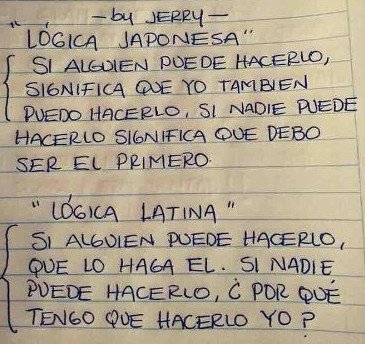 —by JERRY—
"LÓGICA JAPONESA"
SI ALGUIEN PUEDE HACERLO,
SIGNIFICA QUE YO TAMBIEN
PUEDO HACERLO, SI NADIE PUEDE
HACERLO SIGNIFICA QUE DEBO
SER EL PRIMERO.
"LÓGICA LATINA"
SI ALGUIEN PUEDE HACERLO,
QUE LO HAGA EL. SI NADIE
PUEDE HACERLO, ¿POR QUÉ
TENGO QUE HACERLO YO?